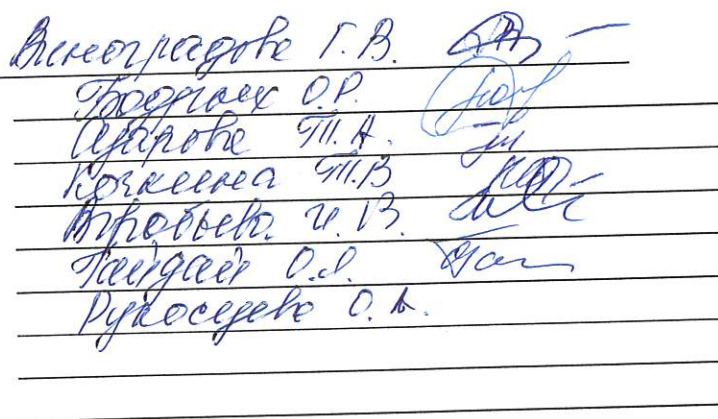 Виноградова Г.В.
Бодрых О.Р.
Азарова Т.А.
Кочкина Т.В
Воробьева И.В.
Гайдай О.Я.
Рукосуева О.А.